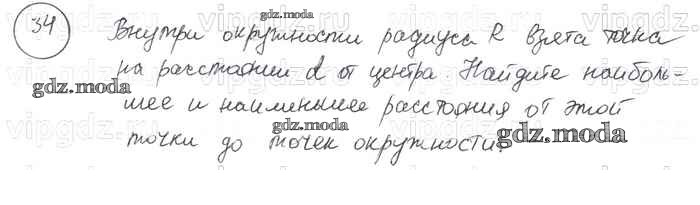 34 Внутри окружности радиуса R взята точка
на расстоянии d от центра. Найдите наиболь-
шее и наименьшее расстояния от этой
точки до точек окружности.
gdz.moda
gdz.moda
gdz.moda
gdz.moda